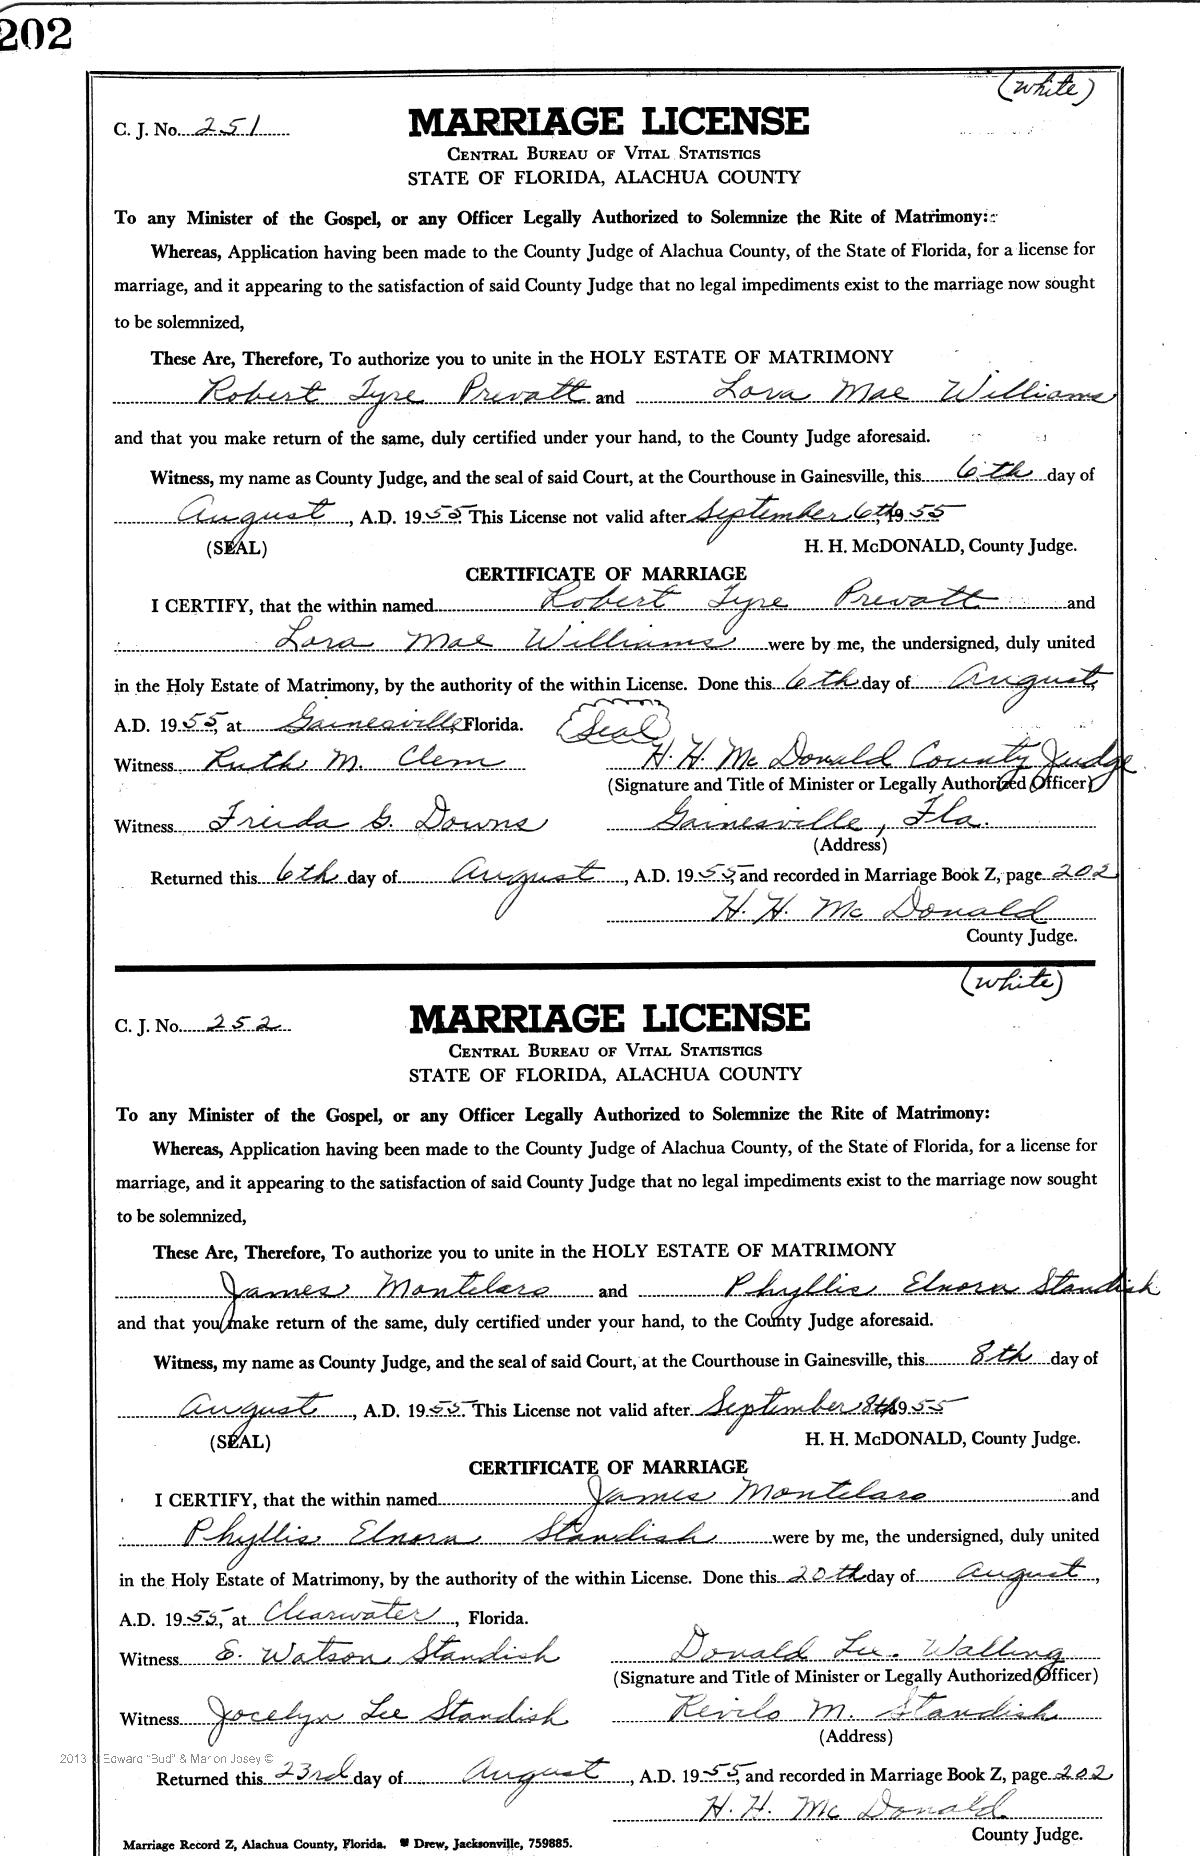 202
(white)
C. J. No. 251
MARRIAGE LICENSE
CENTRAL BUREAU OF VITAL STATISTICS
STATE OF FLORIDA, ALACHUA COUNTY
To any Minister of the Gospel, or any Officer Legally Authorized to Solemnize the Rite of Matrimony:
Whereas, Application having been made to the County Judge of Alachua County, of the State of Florida, for a license for
marriage, and it appearing to the satisfaction of said County Judge that no legal impediments exist to the marriage now sought
to be solemnized,
These Are, Therefore, To authorize you to unite in the HOLY ESTATE OF MATRIMONY
Robert Tyre Prevatt and Lora Mae Williams
and that you make return of the same, duly certified under your hand, to the County Judge aforesaid.
Witness, my name as County Judge, and the seal of said Court, at the Courthouse in Gainesville, this 6th day of
August, A.D. 1955. This License not valid after September 6th, 1955
(SEAL) H. H. McDONALD, County Judge.
CERTIFICATE OF MARRIAGE
I CERTIFY, that the within named Robert Tyre Prevatt and
Lora Mae Williams were by me, the undersigned, duly united
in the Holy Estate of Matrimony, by the authority of the within License. Done this 6th day of August,
A.D. 1955, at Gainesville, Florida. (Seal)
Witness Ruth M. Clem H. H. McDonald County Judge
(Signature and Title of Minister or Legally Authorized Officer)
Witness Freida G. Downs Gainesville, Fla.
(Address)
Returned this 6th day of August, A.D. 1955, and recorded in Marriage Book Z, page 202
H. H. McDonald
County Judge.
(white)
C. J. No. 252
MARRIAGE LICENSE
CENTRAL BUREAU OF VITAL STATISTICS
STATE OF FLORIDA, ALACHUA COUNTY
To any Minister of the Gospel, or any Officer Legally Authorized to Solemnize the Rite of Matrimony:
Whereas, Application having been made to the County Judge of Alachua County, of the State of Florida, for a license for
marriage, and it appearing to the satisfaction of said County Judge that no legal impediments exist to the marriage now sought
to be solemnized,
These Are, Therefore, To authorize you to unite in the HOLY ESTATE OF MATRIMONY
James Montelaro and Phyllis Elnora Standish
and that you make return of the same, duly certified under your hand, to the County Judge aforesaid.
Witness, my name as County Judge, and the seal of said Court, at the Courthouse in Gainesville, this 8th day of
August, A.D. 1955. This License not valid after September 8th, 1955
(SEAL) H. H. McDONALD, County Judge.
CERTIFICATE OF MARRIAGE
I CERTIFY, that the within named James Montelaro and
Phyllis Elnora Standish were by me, the undersigned, duly united
in the Holy Estate of Matrimony, by the authority of the within License. Done this 20th day of August,
A.D. 1955, at Clearwater, Florida.
Witness E. Watson Standish Donald Lee. Walling
(Signature and Title of Minister or Legally Authorized Officer)
Witness Jocelyn Lee Standish Revilo M. Standish
(Address)
2013 J Edward "Bud" & Marion Josey ©
Returned this 23rd day of August, A.D. 1955, and recorded in Marriage Book Z, page 202
H. H. McDonald
County Judge.
Marriage Record Z, Alachua County, Florida. Drew, Jacksonville, 759885.